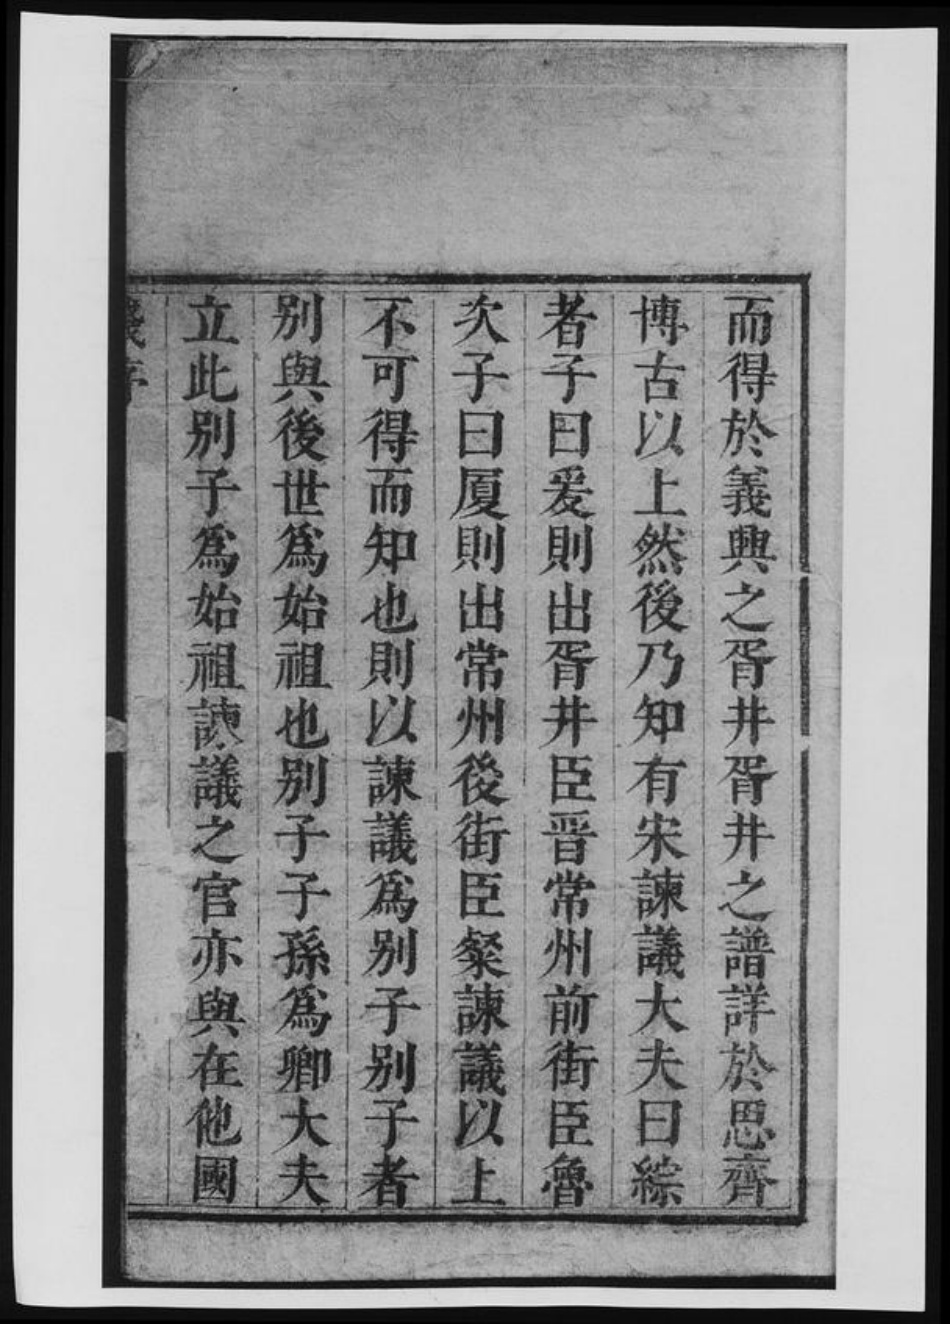 而得於義興之胥井胥井之譜詳於思齊
博古以上然後乃知有宋諫議大夫曰綜
者子曰爰則出胥井臣晋常州前街臣魯
次子曰厦則出常州後街臣粲諫議以上
不可得而知也則以諫議爲别子别子者
别與後世爲始祖也别子子孫爲卿大夫
立此别子爲始祖諫議之官亦與在他國